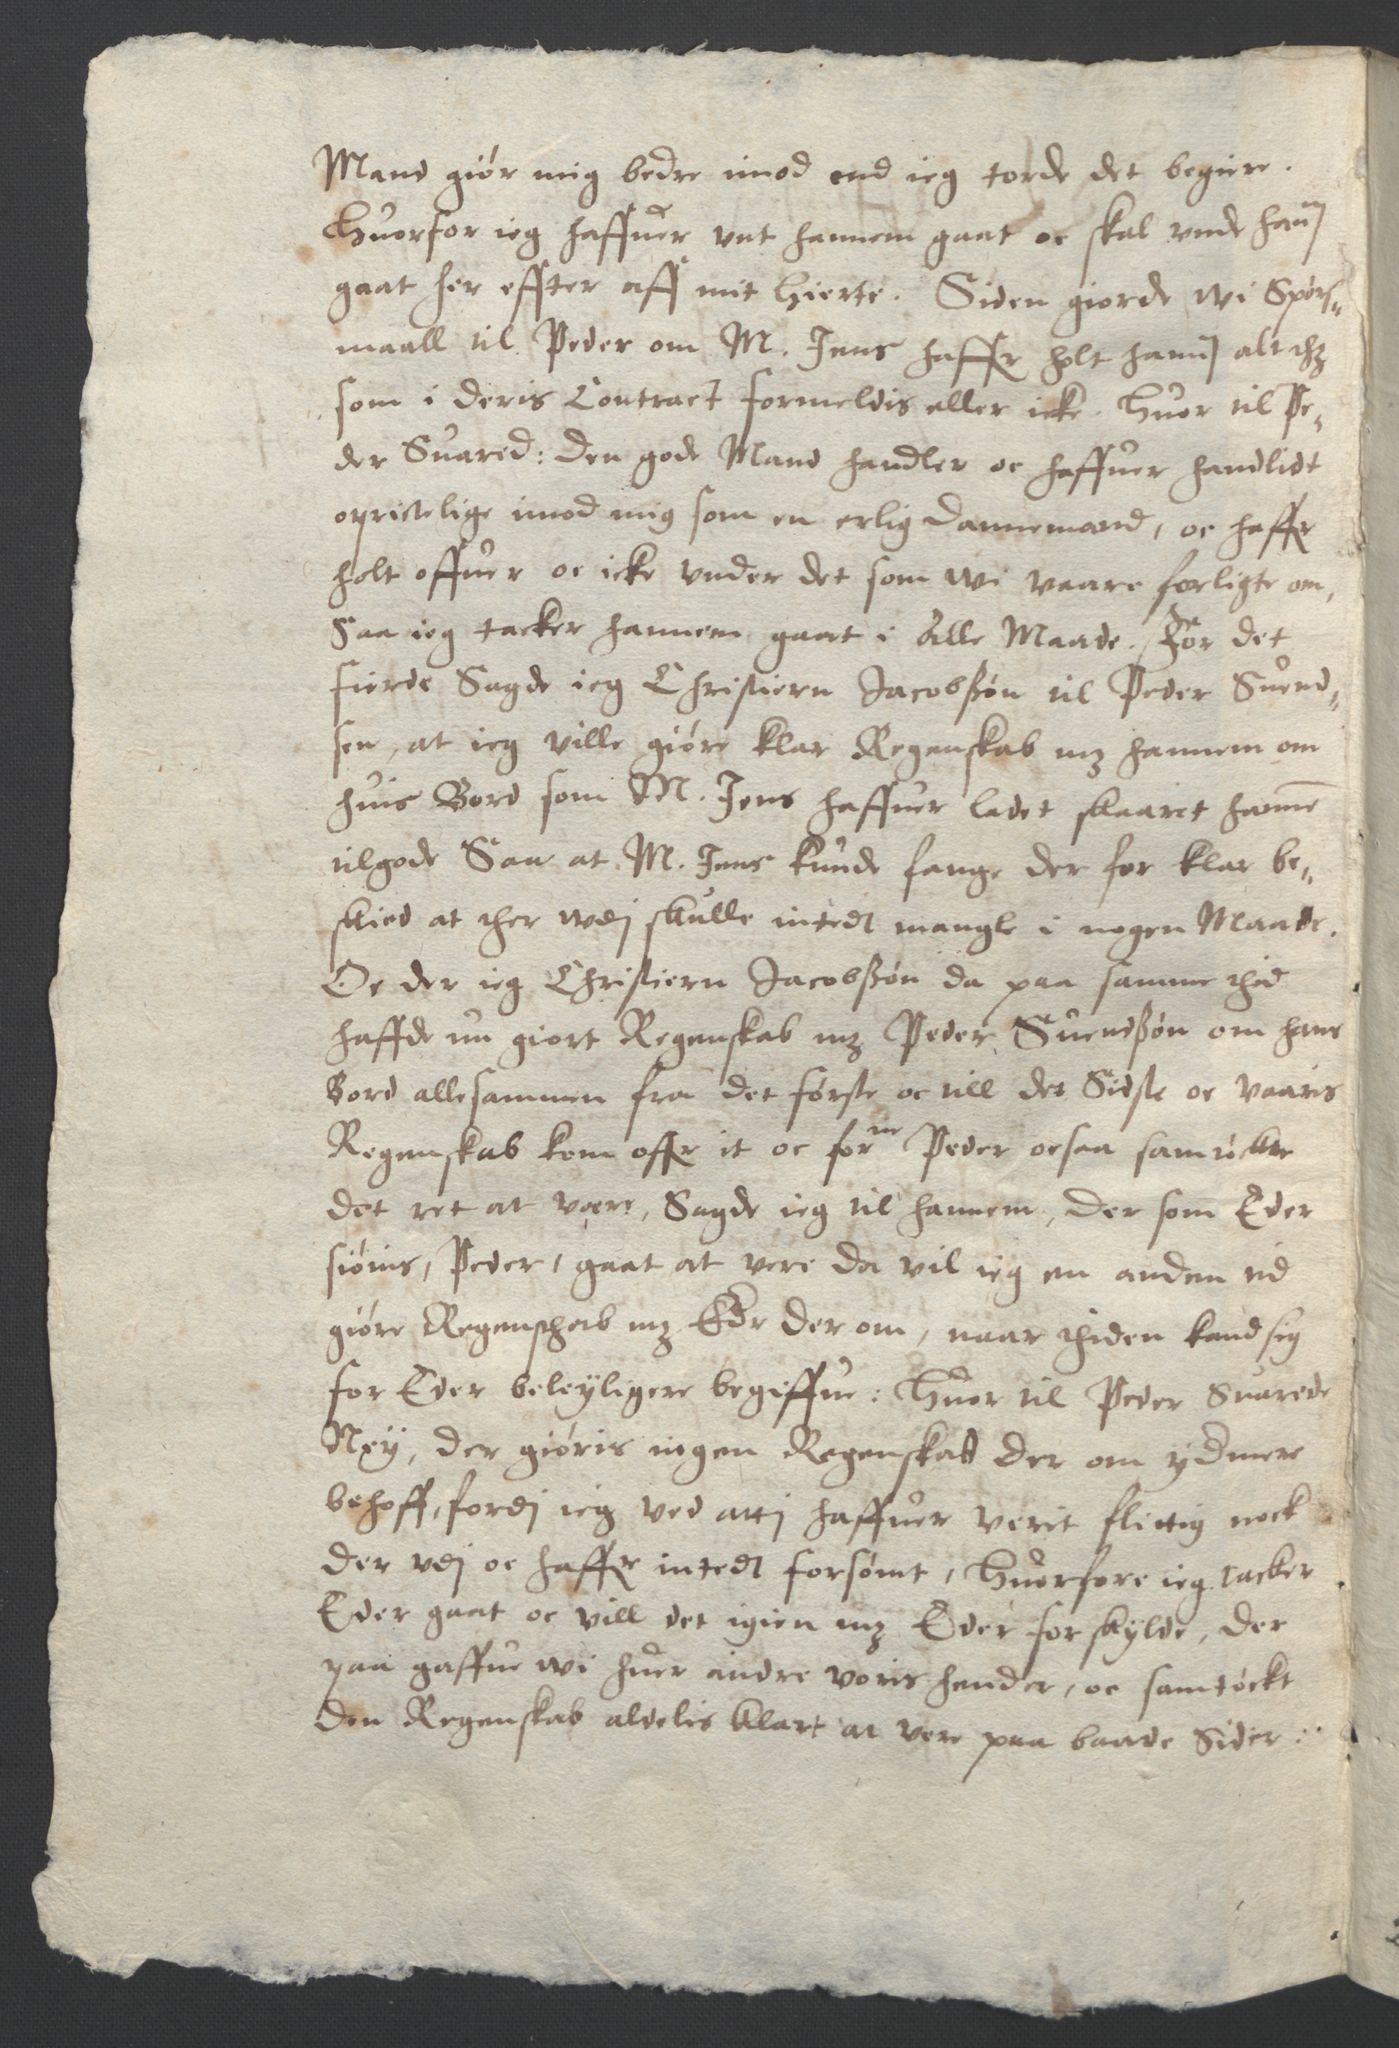 Mand giör mig bedre imod end ieg torde det begiere.
Huorfor ieg haffuer vnt hannem gaat oc skal vnde hañ
gaat her effter aff mit hierte. Siden giorde wi Spörs„
maall til Peder om M. Jens haffr holt hanñ alt thz
som i deris Contract formeldis eller icke. Huor til Pe„
der Suared: Den gode Mand handler oc haffuer handlidt
oprictelige imod mig som en erlig Dannemand, oc haffr
holt offuer oc icke vnder det som wi vaare forligte om,
Saa ieg tacker hannem gaat i Alle Maade. For det
fierde Sagde ieg Christiern Jacobßön til Peder Suend„
sen, at ieg ville giöre klar Regenskab mz hannem om
huis Bord som M. Jens haffuer ladet skaaret hannē
tilgode Saa at M. Jens kunde fange der for klar be„
skied at ther wdj skulle intedt mangle i nogen Maade.
Oc der ieg Christiern Jacobßön da paa samme thid
haffde nu giort Regenskab mz Peder Suendßön om hans
Bord allesammen fra det förste oc till det Sidste oc vaaris
Regenskab kom offr it oc forne Peder ocsaa samtöckte
det ret at vaere, Sagde ieg til hannem, der som Eder
siönis, Peder, gaat at vere da vil ieg en anden tid
giöre Regenschab mz Edr der om, naar thiden kand sig
for Eder beleyligere begiffue: Huor til Peder Suarede
Ney, der giöris ingen Regenskab der om ydmere
behoff, fordj ieg ved attj haffuer verit flittig nock
der vdj oc haffr intedt forsömt, Huorfore ieg tacker
Eder gaat oc vill det igien mz Eder forskylde, der
paa gaffue wi huer andre voris hender, oc samtöckt
den Regenskab aldelis klart at vere paa baade Sider: